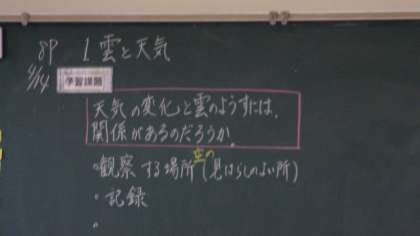 8P 1 雲と天気
4/14 学習課題
天気の変化と雲のようすは、
関係があるのだろうか。
空の
・観察する場所(見はらしのよい所)
・記録
・